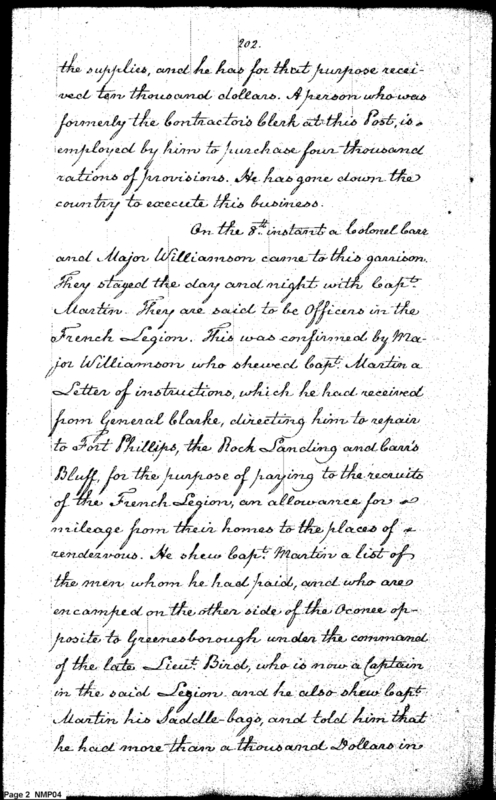 202.
the supplies, and he has for that purpose recei-
ved ten thousand dollars. A person who was
formerly the Contractor's Clerk at this Post, is
employed by him to purchase four thousand
rations of provisions. He has gone down the
country to execute this business.
On the 8th. instant a Colonel Carr
and Major Williamson came to this garrison.
They staged the day and night with Capt.
Martin. They are said to be Officers in the
French Legion. This was confirmed by Ma-
jor Williamson who shewed Capt. Martin a
Letter of instructions, which he had received
from General Clarke, directing him to repair
to Fort Phillips, the Rock Landing and Carr's
Bluff, for the purpose of paying to the recruits
of the French Legion, an allowance for
mileage from their homes to the places of
rendezvous. He shew Capt. Martin a list of
the men whom he had paid, and who are
encamped on the other side of the Oconee op-
posite to Greenesborough under the command
of the late Lieut. Bird, who is now a Captain
in the said Legion. and he also shew Capt.
Martin his Saddle-bags, and told him that
he had more than a thousand Dollars in
Page 2 NMP04